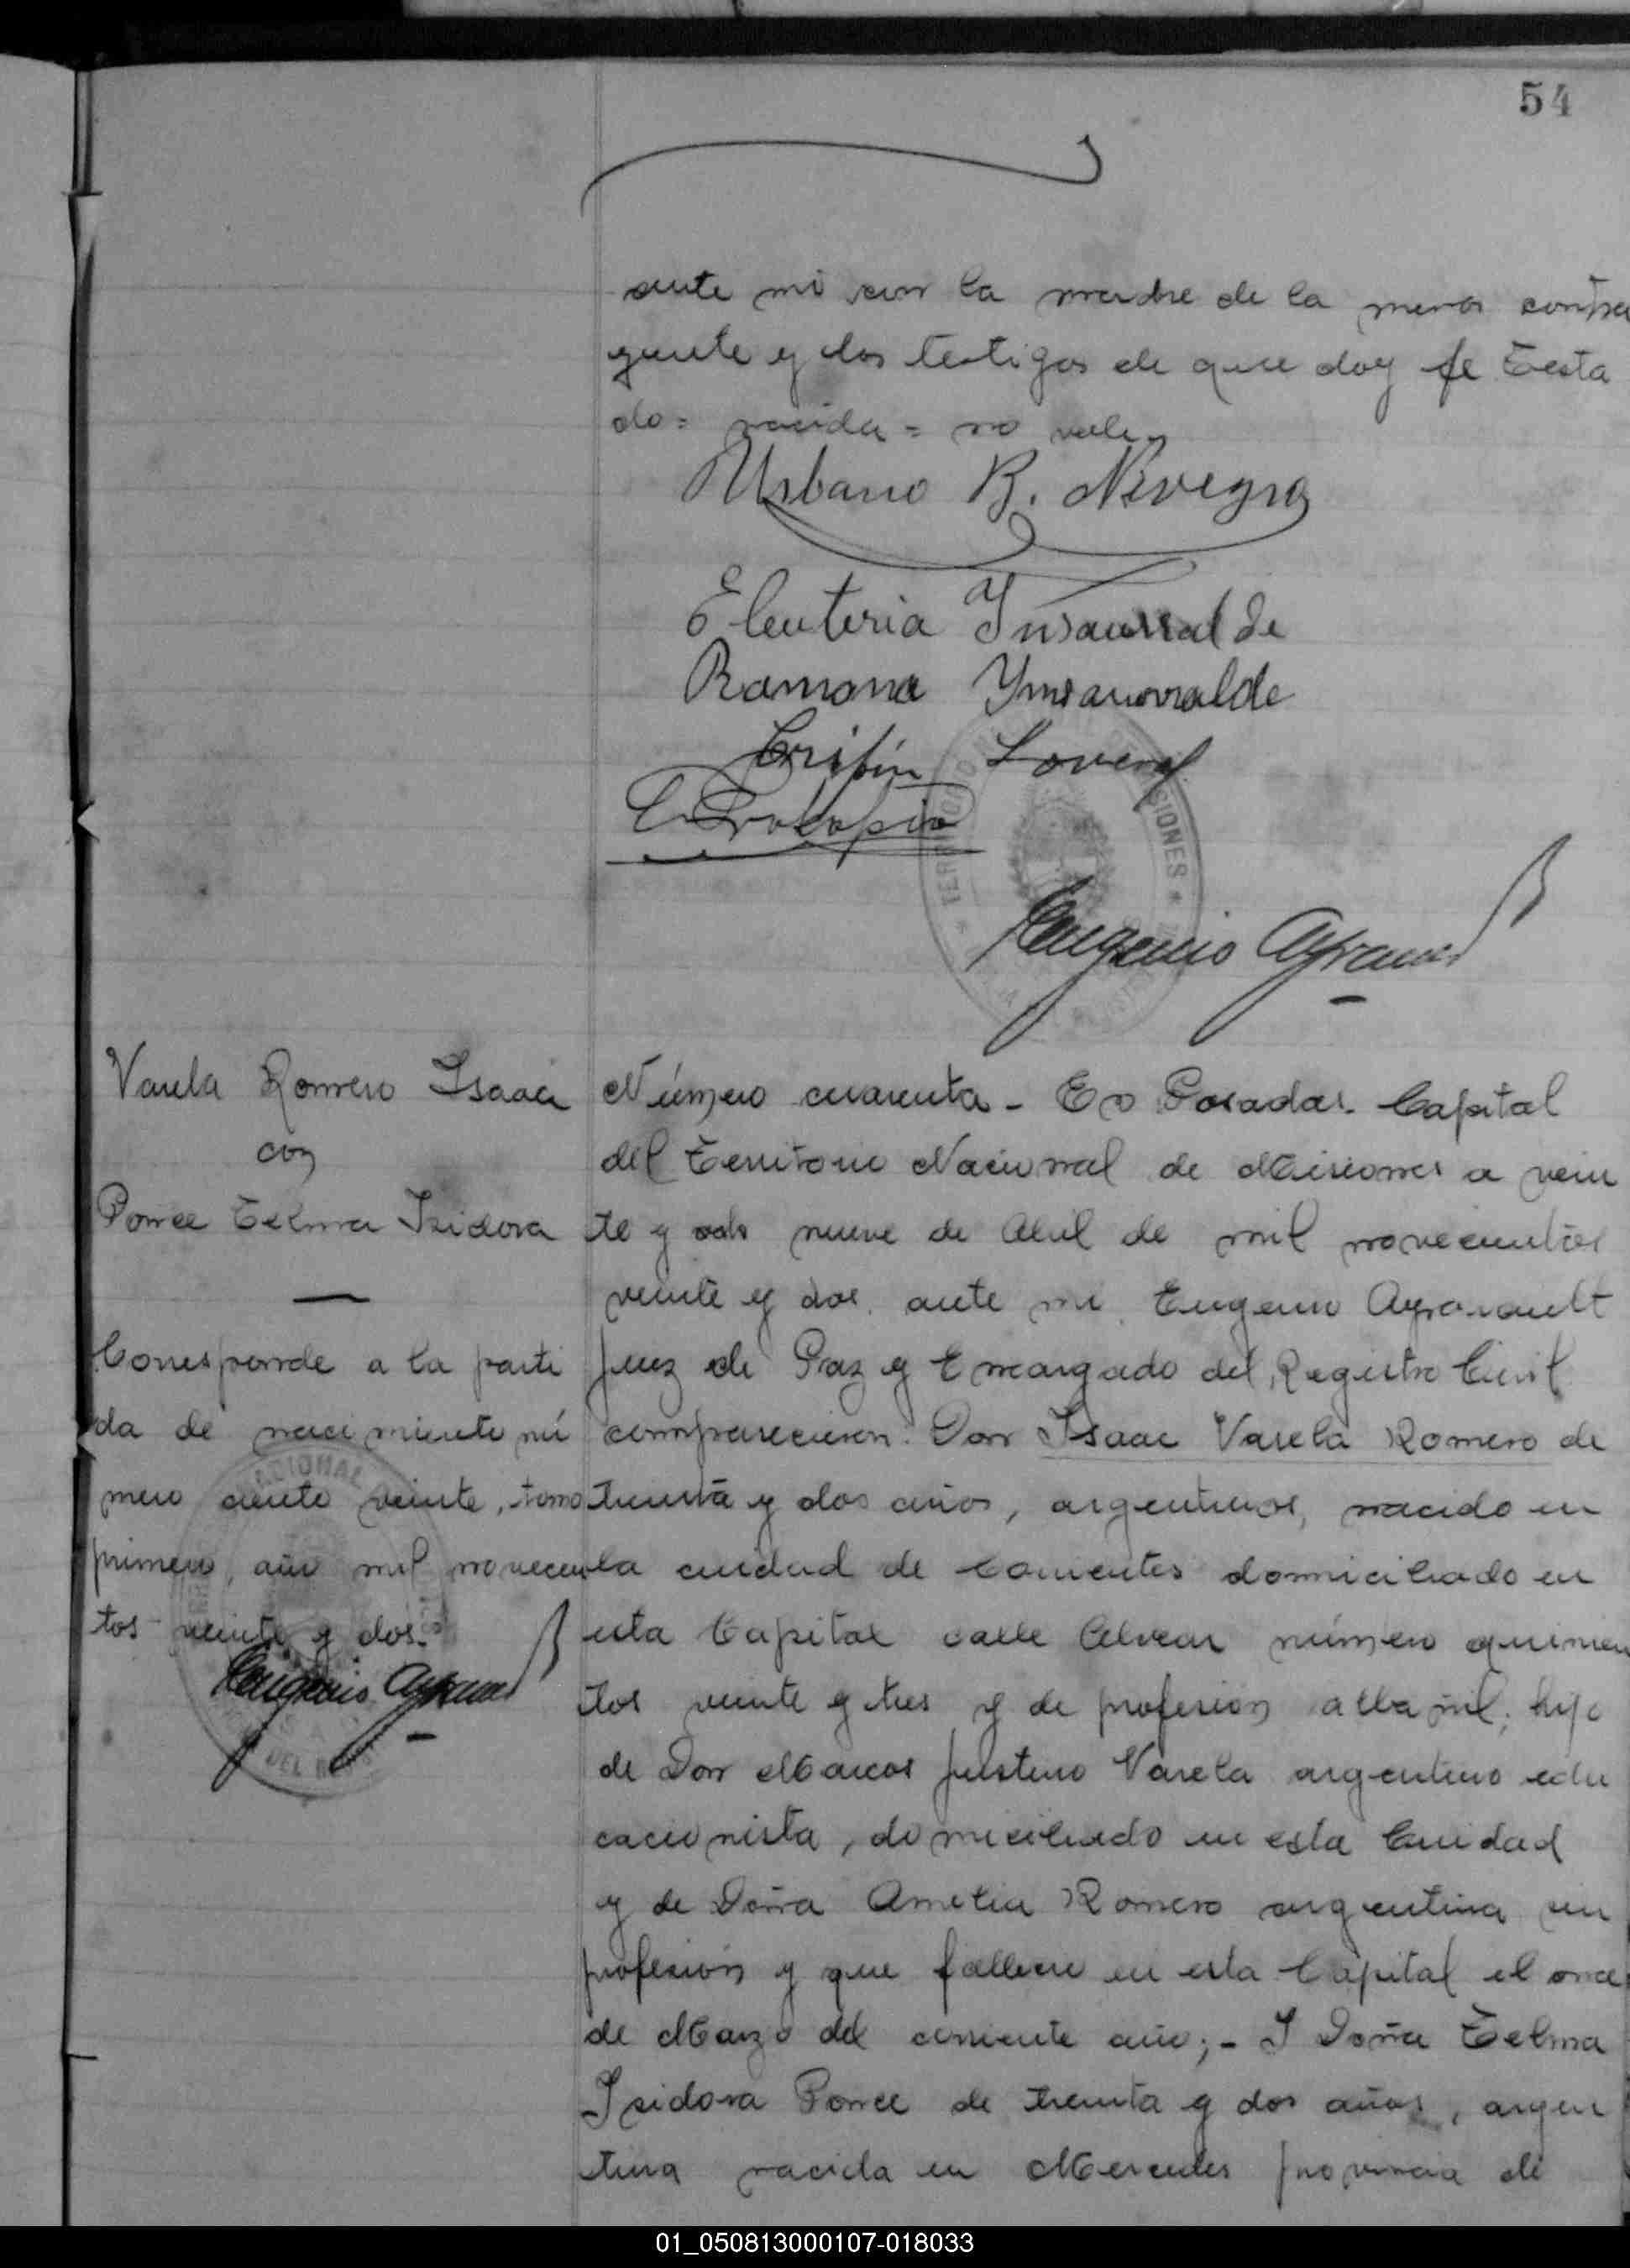 54
ante mi con la madre de la menor contra
yente y los testigos de que doy fe Testa
do = nacida = no vale
Urbano B.
Eleuteria Insaurralde
Ramona Ynsaurralde
Crispín
E. Procopio
SIONES
Eugenio
Varela Romero Isaac
con
Ponce Telma Isidora
Corresponde a la parti
da de nacimiento nú
mero ciento veinte, tomo
primero, año mil novecien
tos veinte y dos.
NACIONAL
DEL
Eugenio
Número cuarenta - En Posadas. Capital
del Territorio Nacional de Misiones a vein
te y nueve de Abril de mil novecientos
veinte y dos. ante mi Eugenio
Juez de Paz y Encargado del Registro Civil
comparecieron: Don Isaac Varela Romero de
treinta y dos años, argentino, nacido en
la ciudad de Corrientes domiciliado en
esta Capital calle Alvear número quinien
tos veinte y tres y de profesion albañil; hijo
de Don Marcos Justino Varela argentino edu
cacionista, domiciliado en esta Ciudad
y de Doña Amelia Romero argentina sin
profesión y que fallecio en esta Capital el once
de Marzo del corriente año; - I Doña Telma
Isidora Ponce de treinta y dos años, argen
tina nacida en Mercedes provincia de
01_050813000107-018033